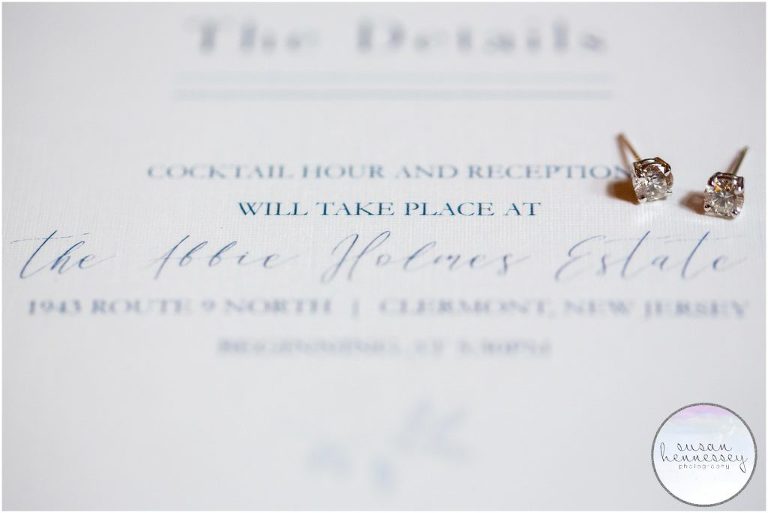 The Details
COCKTAIL HOUR AND RECEPTION
WILL TAKE PLACE AT
the Abbie Holmes Estate
1943 ROUTE 9 NORTH | CLERMONT, NEW JERSEY
BEGINNING AT 5:30PM
susan
hennessey
photography